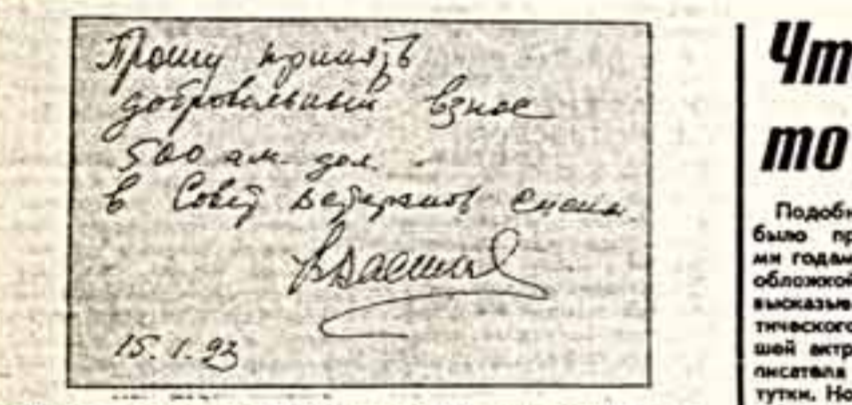 Прошу принять
добровольный взнос
500 ам. дол.
в Совет ветеранов
15.1.93
Чт
то
Подобн
было пр
ми годам
обложкой
высказыв
тического
шей актр
писателя
тутки. Но